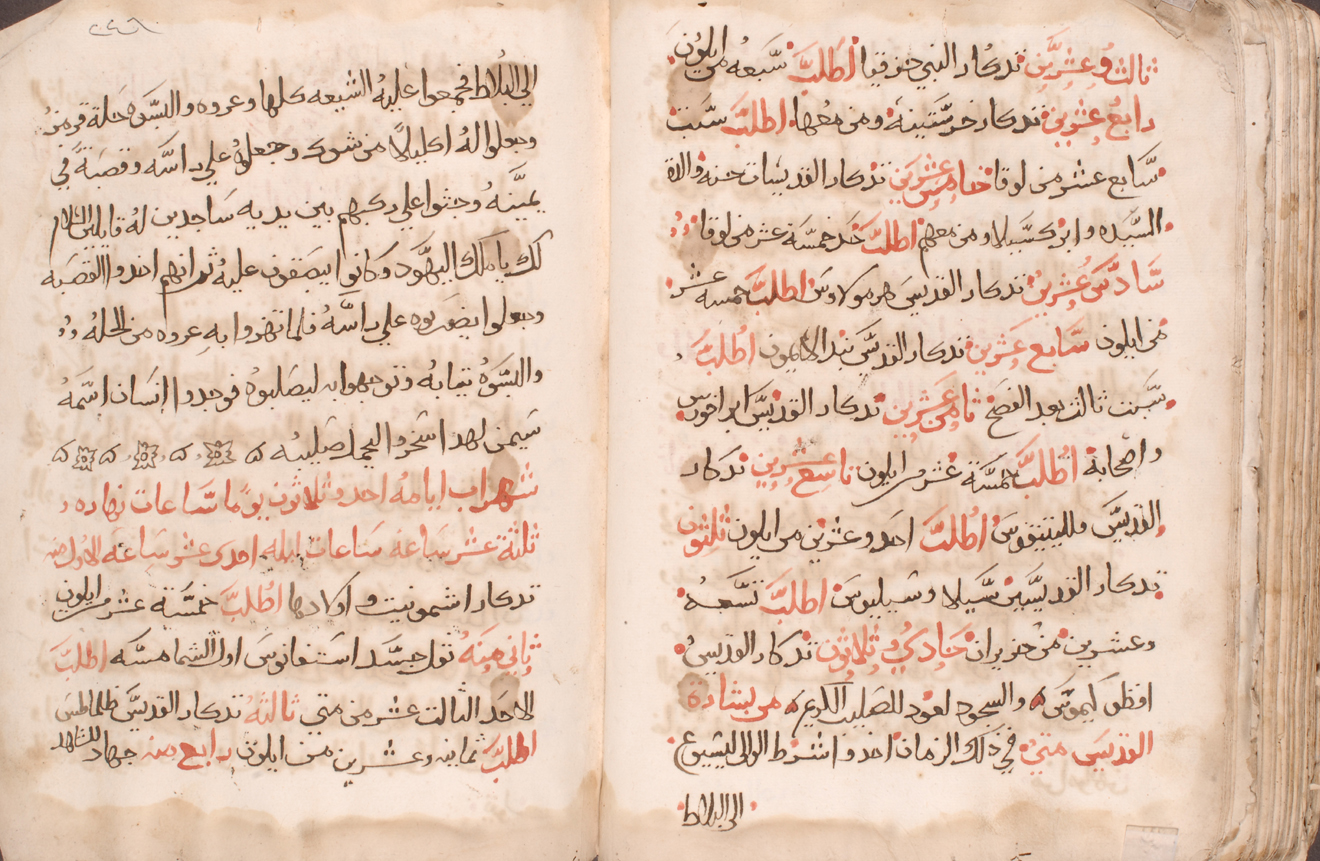 ثالث وعشرين تدكار النبي حزقيا اطلب سبعه من ايلون
رابع عشرين تدكار خرستينه ومن معها اطلب سبت
سابع عشر من لوقا خامس عشرين تدكار القديسات حنه والدة
السيده وابركسيلا ومن معهم اطلب حد خمسة عشر من لوقا
سادس عشرين تدكار القديس هرمولاوس اطلب خمسه عشر
من ايلون سابع عشرين تدكار القديس بندلايمون اطلب
سبت ثالث بعد الفصح ثامن عشرين تدكار القديس ابراخورس
واصحابه اطلب خمسة عشر من ايلون تاسع عشرين تدكار
القديس اطلب احد وعشرين من ايلون ثلثون
تدكار القديسين سيلا وسيليوس اطلب تسعه
وعشرين من حزيران حادي وثلاثون تدكار القديس
افظوكيموس والسجود لعود للصليب الكريم من بشارة
القديس متي في ذلك الزمان اخدوا اشرط الوالي ليسوع
الى البلاط
الى البلاط فجمعوا عليه الشيعه كلها وعروه والبسوه حلة قرمز
وجعلوا له اكليلا من شوك وجعلوه علي راسه وقصبة في
يمينه وجثوا علي ركبهم بين يديه ساجدين له قايلين السلام
لك يا ملك اليهود وكانوا يبصقون عليه ثم انهم اخدوا القصبه
وجعلوا يضربوه علي راسه فلما تهزوا به عروه من الحله
والبسوه تيابه وتوجهوا به ليصلبوه فوجدوا انسان اسمه
سيمن لهدا اسخروا ليحمل صليبه
شهر اب ايامه احد وثلاثون يوما ساعات نهاره
ثلثة عشر ساعة ساعات ليله احدى عشر ساعه الاول منه
تدكار اشمونيت واولادها اطلب خمسة عشر من ايلون
ثاني منه نقل جسد استفانوس اول الشمامسه اطلب
الاحد الثالث عشر من متي ثالثه تدكار القديس
اطلب ثمانيه وعشرين من ايلون رابع منه جهاد